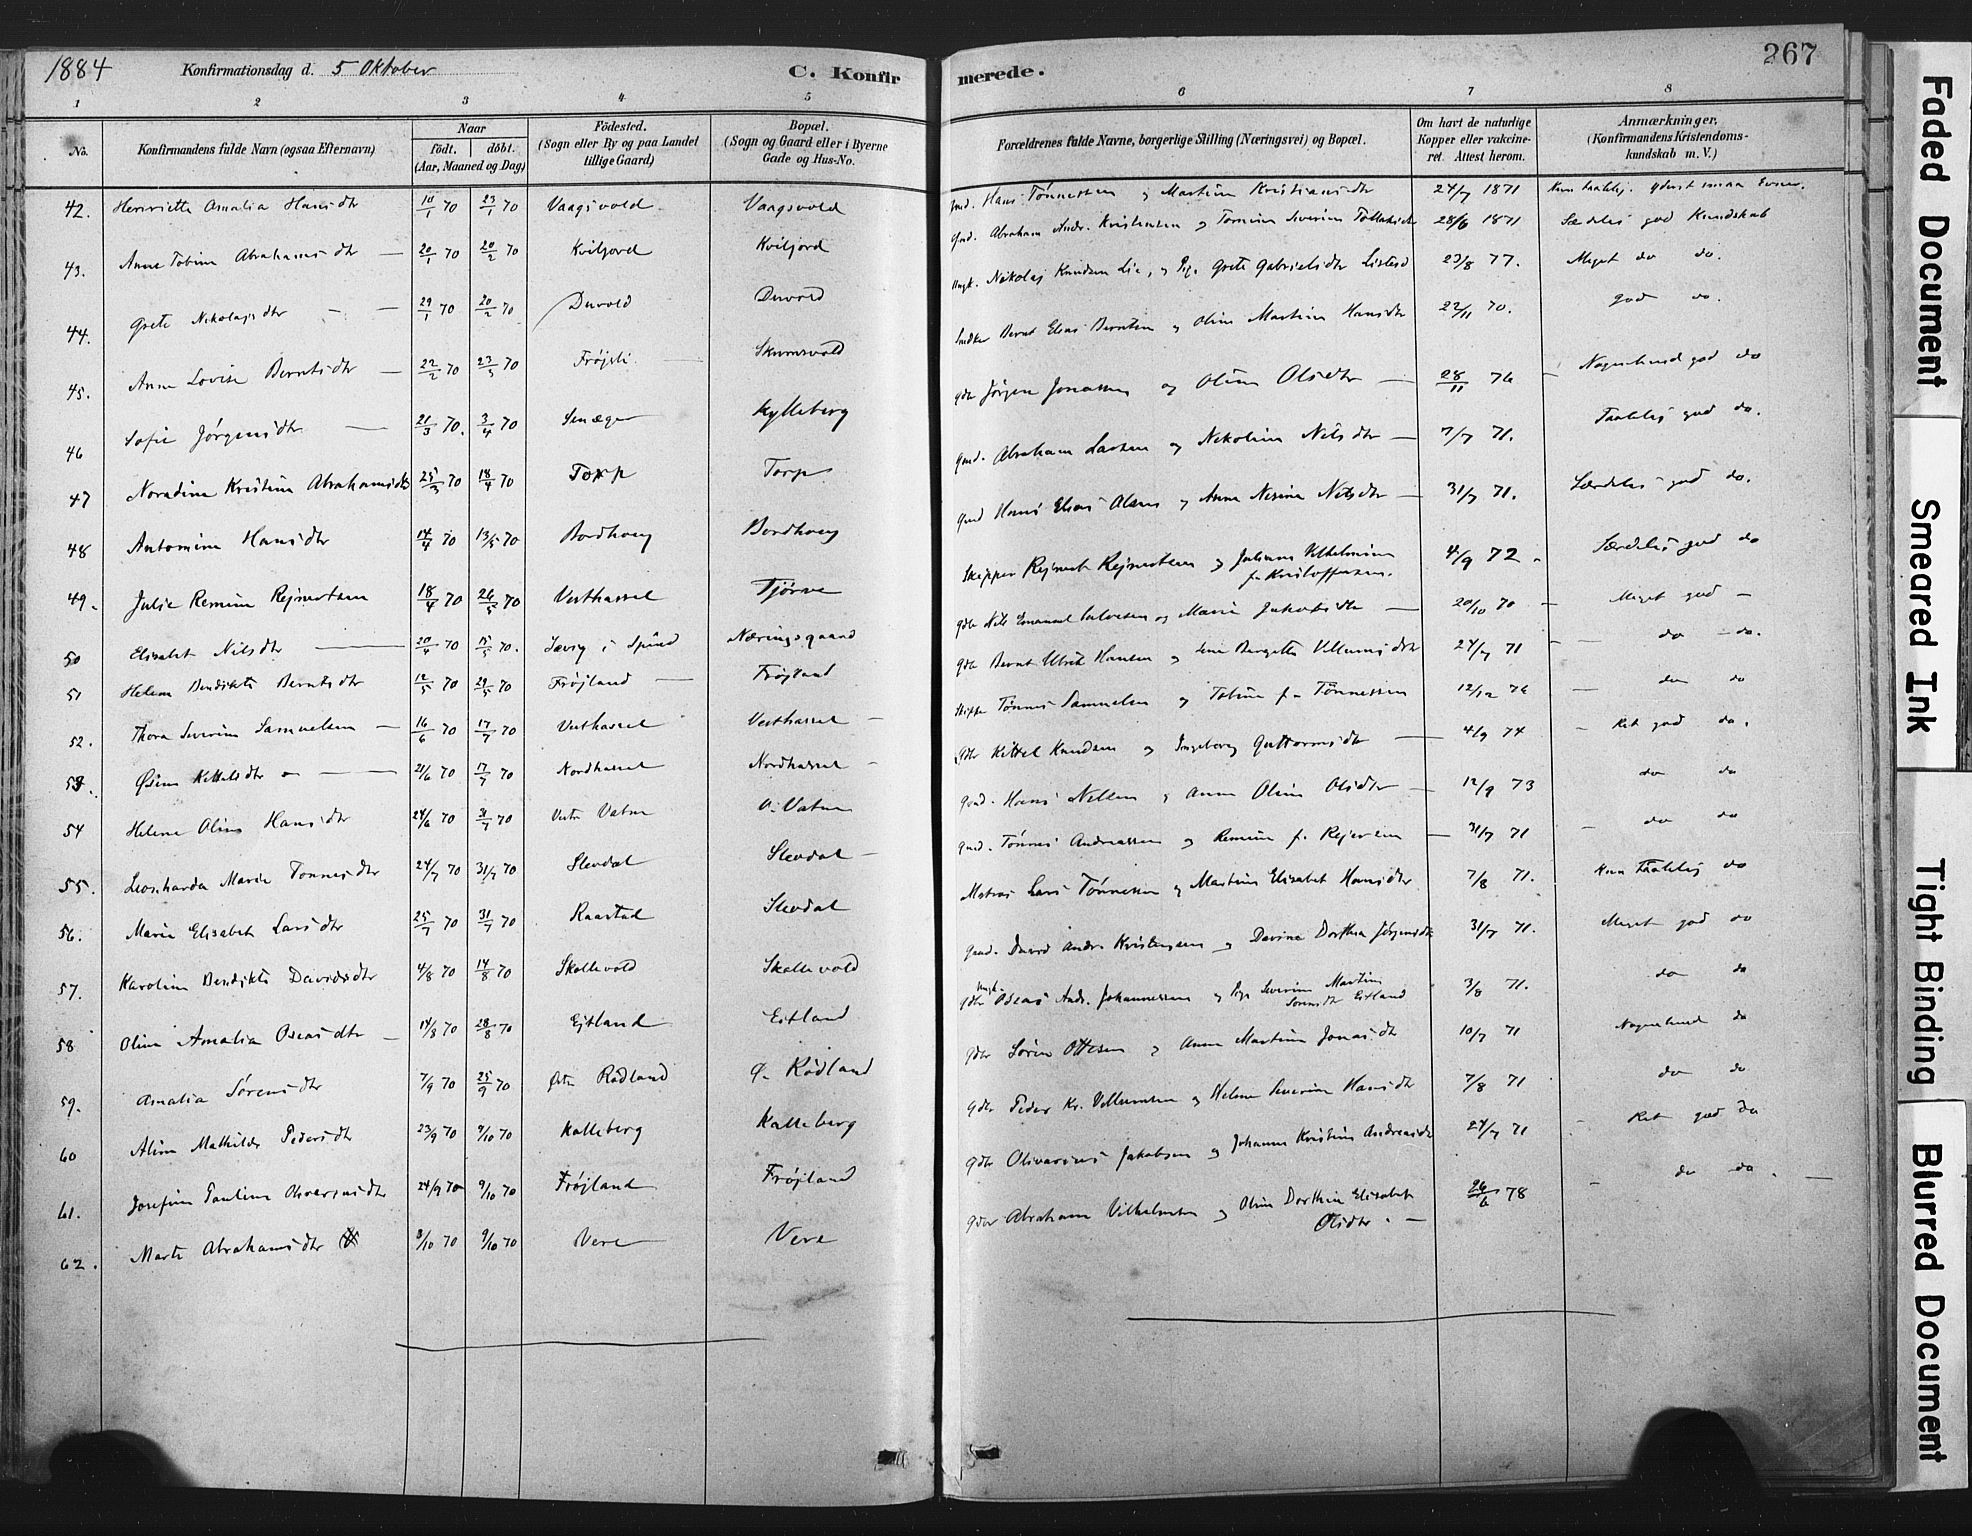 1884 Konfirmationsdag d. 5 Oktober C. Konfirmerede. 267
1 2 3 4 5 6 7 8
No. Konfirmandens fulde Navn (ogsaa Efternavn) Naar födt. döbt. (Aar, Maaned og Dag) Födested. (Sogn eller By og paa Landet tillige Gaard) Bopæl. (Sogn og Gaard eller i Byerne Gade og Hus-No. Forældrenes fulde Navne, borgerlige Stilling (Næringsvei) og Bopæl. Om havt de naturlige Kopper eller vakcineret. Attest herom. Anmærkninger. (Konfirmandens Kristendomskundskab m. V.)
42. Henriette Amalia Hansdtr 10/1 70 23/1 70 Vaagsvold Vaagsvold Gmd. Hans Tønnessen og Martine Kristiansdtr 24/7 1871 Kun taalelig. yderst smaa Evner.
43. Anne Tobine Abrahamsdtr — 20/1 70 20/2 70 Kviljord Kviljord Gmd. Abraham Andr. Kristensen og Tomine Severine Tollaksdtr 28/6 1871 Særdeles god Kundskab
44. Grete Nikolajsdtr — — 29/1 70 20/2 70 Duvold Duvold Ungk. Nikolaj Knudsen Lie, og Pige Grete Gabrielsdtr Listeid 23/8 77. Meget do do.
45. Anne Lovise Berntsdtr — 22/2 70 23/3 70 Frøjsli — Skumsvold Smed Bernt Elias Berntsen og Oline Martine Hansdtr 22/11 70. god do.
46 Sofie Jørgensdtr — 21/3 70. 3/4 70 Kylleberg Gdr Jørgen Jonassen og Oline Olsdtr — 28/11 76 — Nogenlunde god do
47 Noradine Kristine Abrahamsdtr 25/3 70 18/4 70 Torp Torp Gmd. Abraham Larsen og Nikoline Nilsdtr — 7/7 71. Taalelig god do.
48 Antomine Hansdtr 14/4 70 13/5 70 Bordhoug Bordhoug Gmd Hans Elias Olsen og Anne Nesine Nilsdtr — 31/7 71. Særdeles god do.
49. Julie Remine Rejnertsen 18/4 70 26/5 70 Vesthassel Tjørve Skipper Rejnert Rejnertsen og Juliane Vilhelmine f. Kristoffersen. 4/9 72 - Særdeles god do
50 Elisabet Nilsdtr — 20/4 70 15/5 70. Sævig i Spind Næringsgaard Gdr Nils Emanuel Salvesen og Marie Jakobsdtr — 20/10 70 — Meget god —
51 Helene Bendikte Berntsdtr 12/5 70 29/5 70 Frøjland — Frøjland Gdr Bernt Ulrik Hansen og Lene Bergitte Villumsdtr 24/7 71 — do — do.
52. Thora Severine Samuelsen — 16/6 70 17/7 70 Vesthassel Vesthassel — Skipper Tønnes Samuelsen og Tobine f. Tønnessen 12/12 76 — do do
53. Øsine Kittelsdtr — 21/6 70 17/7 70 Nordhassel Nordhassel — Gdr Kittel Knudsen og Ingeborg Guttormsdtr — 4/9 74 — Ret god do.
54 Helene Oline Hansdtr 24/6 70 31/7 70 Vestr Vatne V. Vatne Gmd. Hans Nilsen og Anne Oline Olsdtr — 12/9 73 do do
55. Leonharda Marie Tønnesdtr 24/7 70 31/7 70 Slevdal Slevdal — Gmd. Tønnes Andreassen og Remine f. Rejersen — 31/7 71 — do do
56. Marie Elisabet Larsdtr 25/7 70 31/7 70 Raastad Slevdal Matros Lars Tønnessen og Martine Elisabet Hansdtr 7/8 71. Kun taalelig do
57. Karoline Bendikte Davidsdtr 4/8 70 14/8 70 Skollevold Skollevold Gmd. David Andr. Kristensen og Davine Dorthea Jørgensdtr 31/7 71. Meget god do
58 Oline Amalia Oseasdtr — 14/8 70 28/8 70 Ejtland Eitland Ungk. Oseas Andr. Johannessen og Pige Severine Martine Eitland 3/8 71. do do
59. Amalia Sørensdtr 7/9 70 25/9 70 Østr Rødland Ø. Rødland Gdr Søren Ottesen og Anne Martine Jonasdtr 10/7 71 Nogenlunde do
60 Aline Mathilde Pedersdtr 23/9 70 9/10 70 Kalleberg Kalleberg Gdr Peder Kr. Villumsen og Helene Severine Hansdtr 7/8 71 do do
61. Josefine Pauline Olivariusdtr 24/9 70 9/10 70 Frøjland Frøjland Gdr Olivarius Jakobsen og Johanne Kristine Andreasdtr 24/7 71 — Ret god do
62. Marte Abrahamsdtr 3/10 70 9/10 70 Vere — Vere Gdr Abraham Vilhelmsen og Oline Dorthea Elisabet Olsdtr. — 26/6 78 — do do. —
Faded Document
Smeared Ink
Tight Binding
Blurred Document